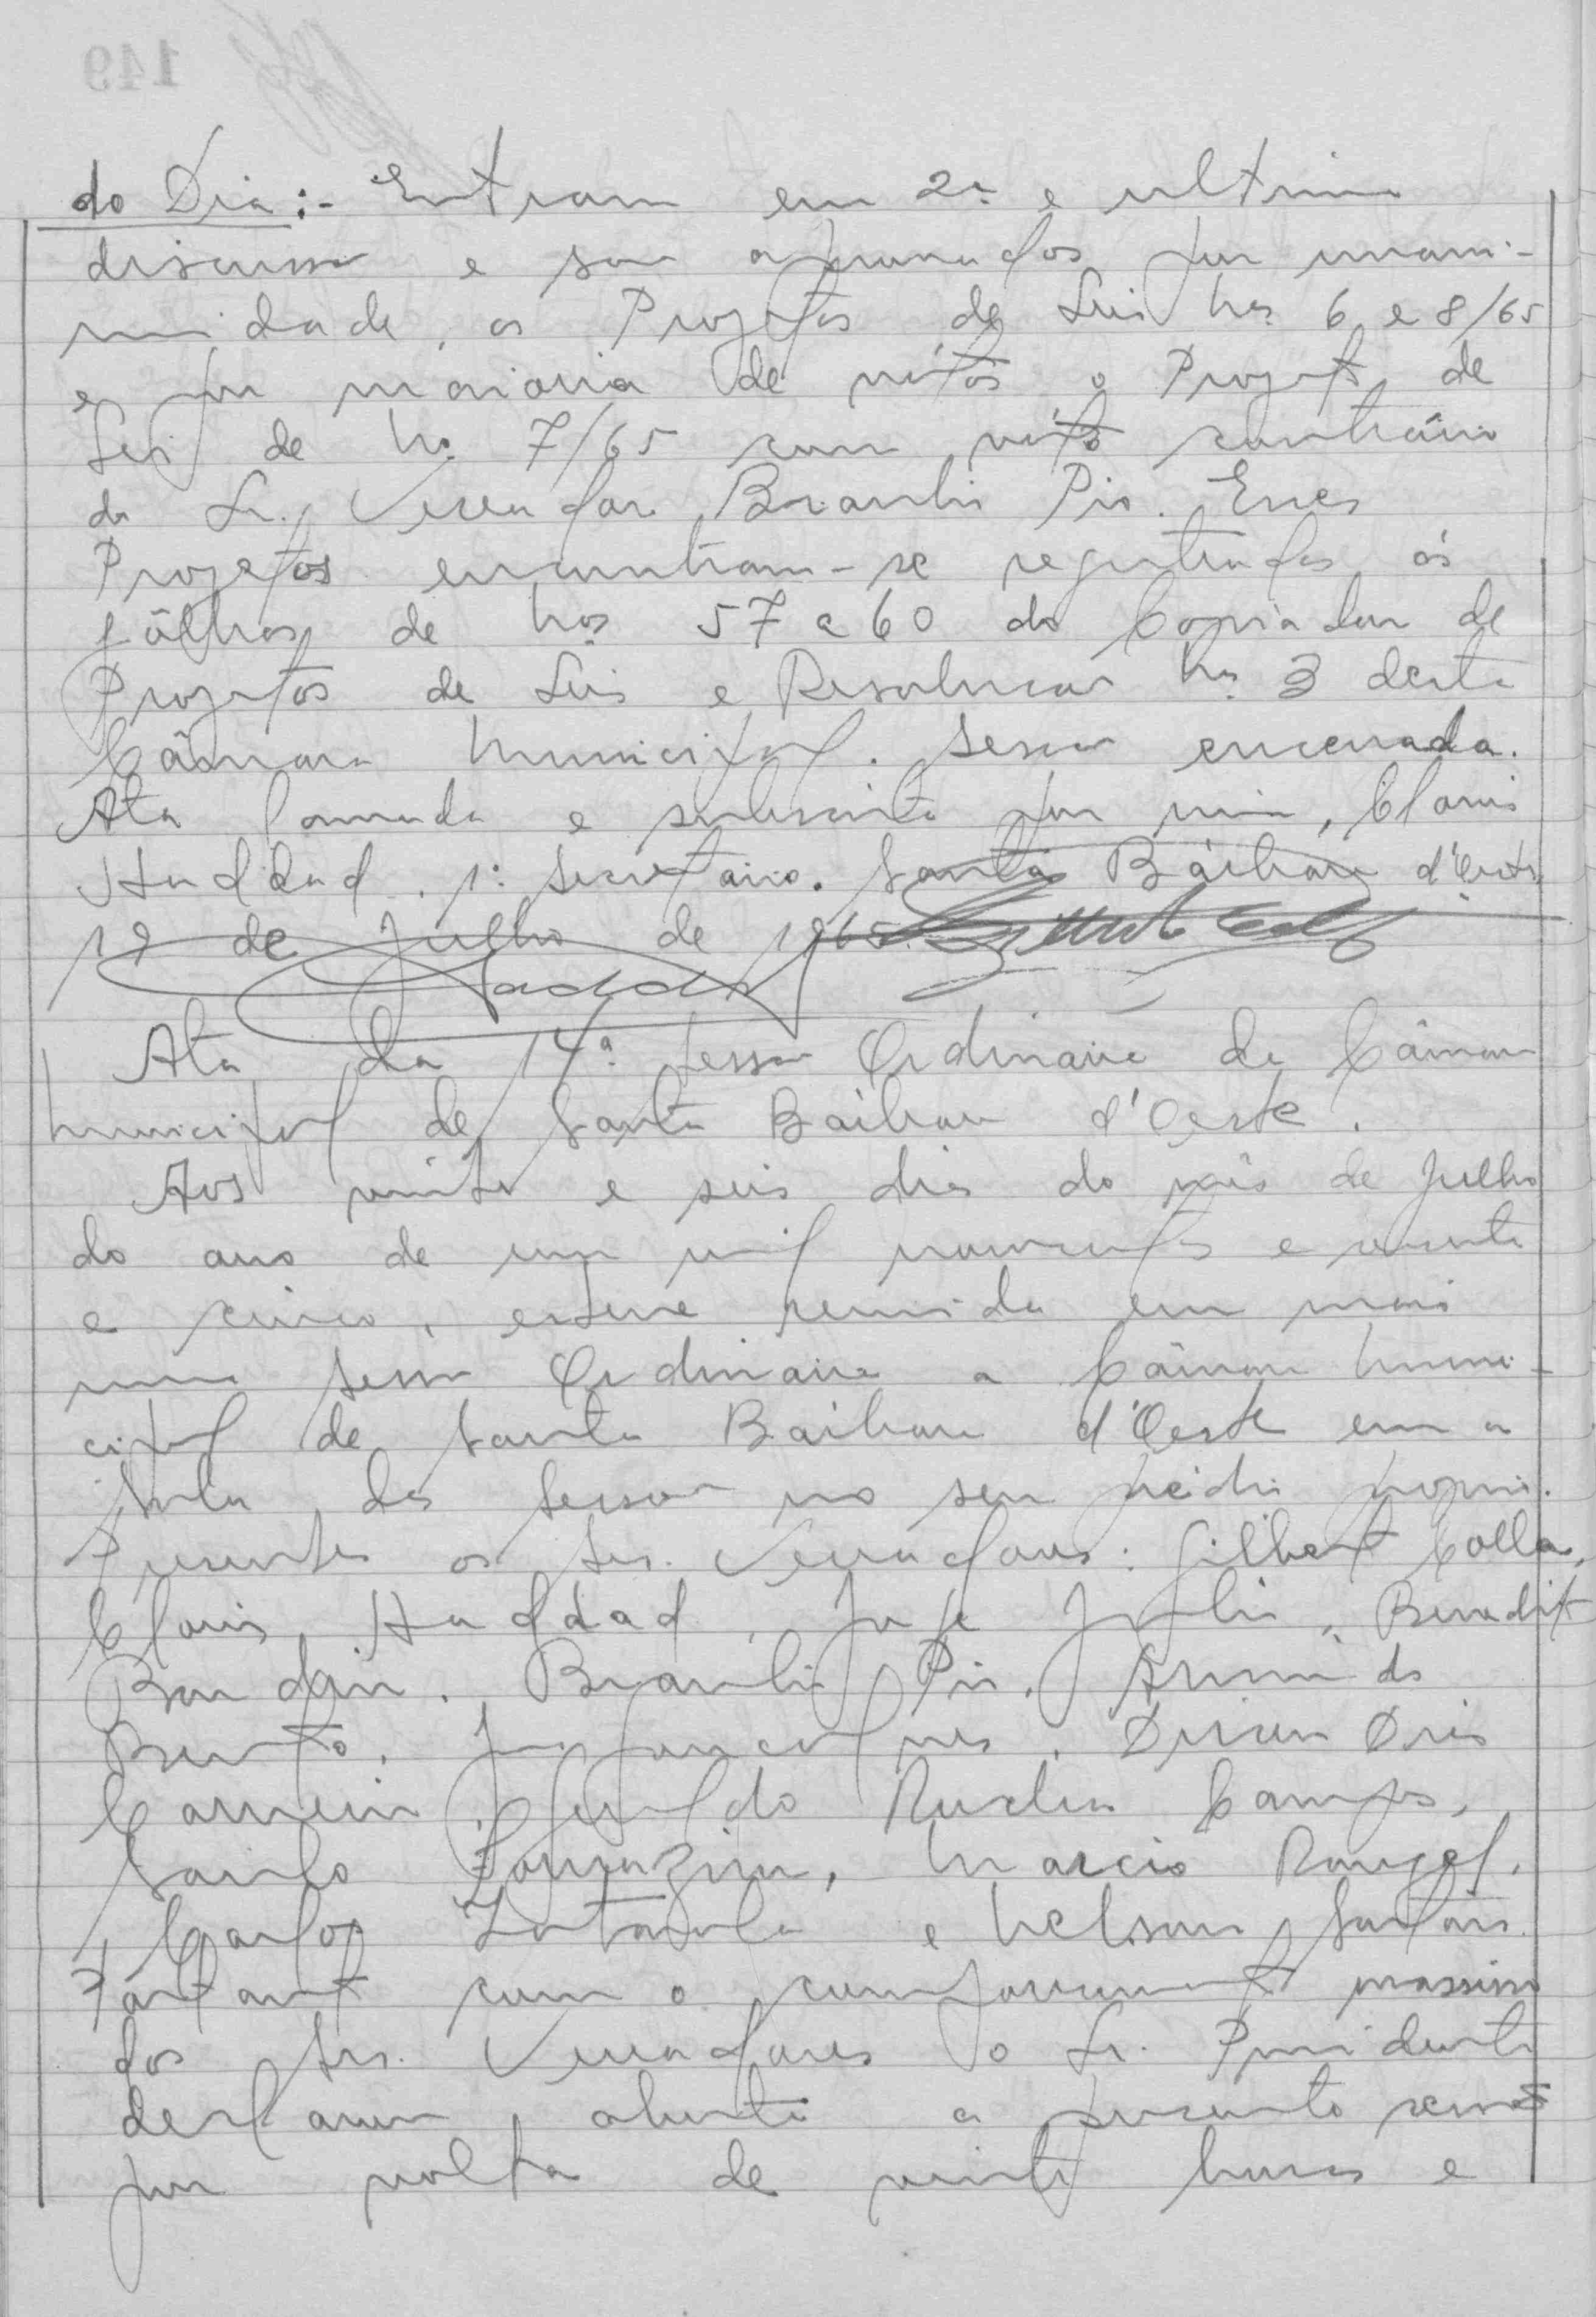 do Dia:- Entram em 2ª e ultima
discussão e são aprovados por unani-
midade, os Projetos de Leis nos 6 e 8/65
e por maioria de votos o Projeto de
Lei de no 7/65 com voto contrário
do Sr. Vereador Brasilio Pio. Esses
Projetos encontram-se registrados ás
fôlhas de nos 57 a 60 do Copiador de
Projetos de Leis e Resolucoes no 3 desta
Câmara Municipal. Sessão encerrada.
Ata lavrada e subscrita por mim, Clovis
Haddad, 1º Secretario. Santa Bárbara d'Oeste,
19 de Julho de 1965.
Haddad
Ata da 14ª Sessão Ordinaria da Câmara
Municipal de Santa Bárbara d'Oeste.
Aos vinte e seis dias do mês de Julho
do ano de um mil novecentos e sessenta
e cinco, esteve reunida em mais
uma Sessão Ordinaria a Câmara Muni-
cipal de Santa Bárbara d'Oeste em a
Sala das Sessões no seu prédio proprio.
Presentes os Srs. Vereadores: Gilberto Colla,
Clovis Haddad, Jorge Julio, Benedito
Brasilio Pio, Armindo
Bento, Dirceu Dias
Carneiro, Geraldo Rocha Campos,
Marcio Rangel,
Carlos e Nelson
Portanto com o comparecimento massiso
dos Srs. Vereadores o Sr. Presidente
declarou aberta a presente sessão
por volta de vinte horas e